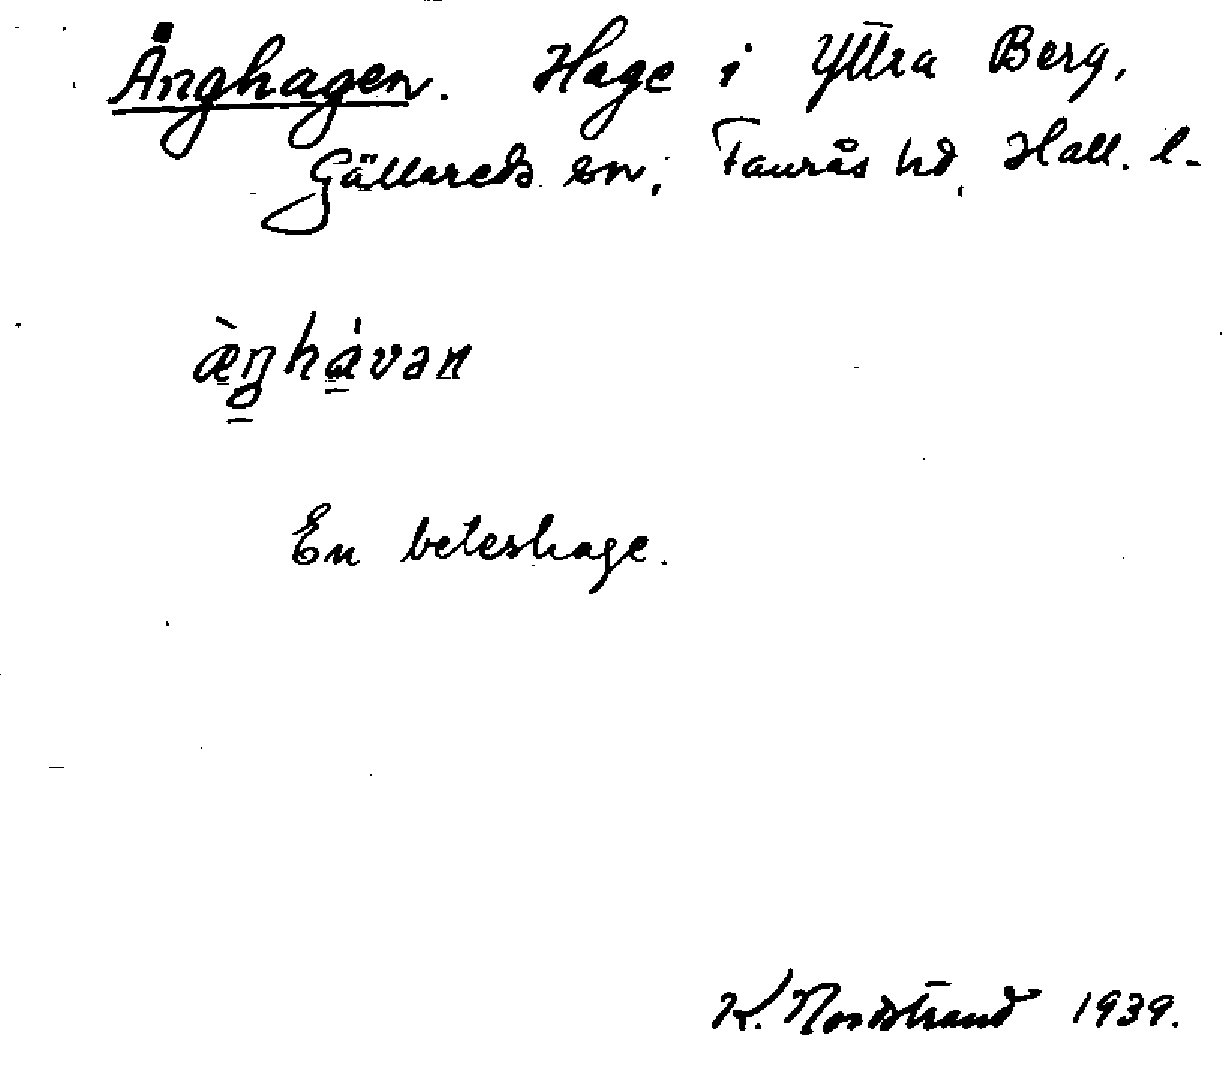 Änghagen. Hage i Yttra Berg,
Gällareds sn, Faurås hd, Hall. l.
æ̀ŋhávən
En beteshage.
K. Nordstrand 1939.